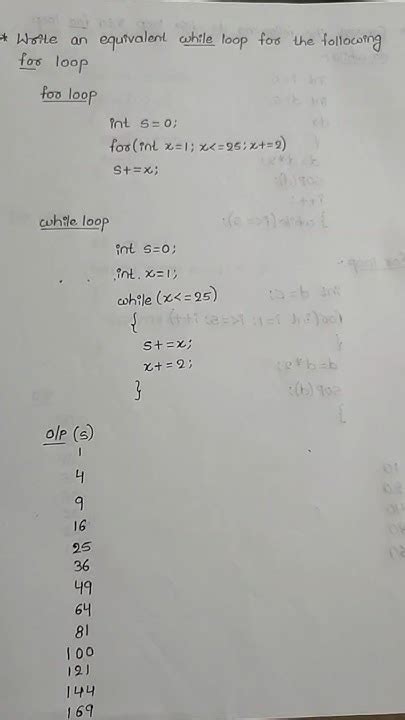 * Write an equivalent while loop for the following
for loop
for loop
int s=0;
for(int x=1; x<=25; x+=2)
s+=x;
while loop
int s=0;
int x=1;
while (x<=25)
{
s+=x;
x+=2;
}
O/P (s)
1
4
9
16
25
36
49
64
81
100
121
144
169